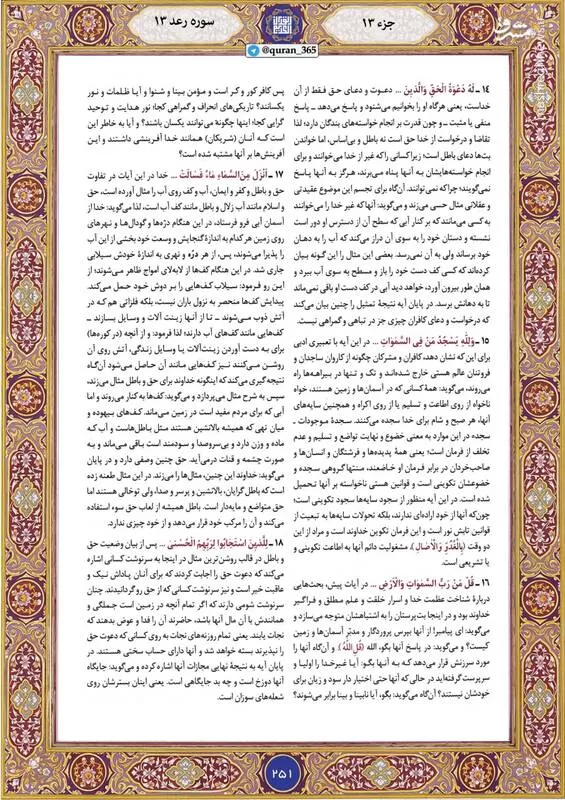 جزء ۱۳
سوره رعد ۱۳
@quran_365
مشرق
۱۴ - لَهُ دَعْوَةُ الْحَقِّ وَالَّذِينَ ... دعوت و دعای حق فقط از آن
خداست، یعنی هرگاه او را بخوانیم می‌شنود و پاسخ می‌دهد ـ پاسخ
منفی یا مثبت ـ و چون قدرت بر انجام خواسته‌های بندگان دارد؛ لذا
تقاضا و درخواست از خدا حق است نه باطل و بی‌اساس، اما خواندن
بت‌ها دعای باطل است؛ زیرا کسانی را که غیر از خدا می‌خوانند و برای
انجام خواسته‌هایشان به آنها پناه می‌برند، هرگز به آنها پاسخ
نمی‌گویند؛ چرا که نمی توانند. آنگاه برای تجسم این موضوع عقیدتی
و عقلانی مثال حسی می‌زند و می‌گوید: آنها که غیر خدا را می‌خوانند
به کسی می‌مانند که بر کنار آبی که سطح آن از دسترس او دور است
نشسته و دستان خود را به سوی آن دراز می‌کند که آب را به دهـان
خود برساند ولی به آن نمی‌رسد. بعضی این مثال را این گونه بیان
کرده‌اند که کسی کف دست خود را باز و مسطح به سوی آب ببرد و
همان طور بیرون آورد، خواهد دید آبی در کف دست او باقی نمی‌ماند
تا به دهانش برسد. در پایان آیه به‌نتیجهٔ تمثیل را چنین بیان می‌کند
که درخواست و دعای کافران چیزی جز در تباهی و گمراهی نیست.
۱۵ - وَلِلّٰهِ يَسْجُدُ مَنْ فِي السَّمٰوَاتِ ... در این آیه با تعبیری ادبی
برای این که نشان دهد، کافران و مشرکان چگونه از کاروان ساجدان و
فروتنان عالم هستی خارج شده‌انـد و تک و تنـها در بیراهـه‌ها راه
می‌روند، می‌گوید: همهٔ کسانی که در آسمان‌ها و زمین هستند، خواه
ناخواه از روی اطاعت و تسلیم یا از روی اکراه و همچنین سایه‌های
آنها، هر صبح و شام برای خدا سجده می‌کنند. سجدهٔ موجودات ـ
سجده در این موارد به معنی خضوع و نهایت تواضع و تسلیم و عدم
تخلف از فرمان است؛ یعنی همهٔ پدیده‌ها و فرشتگان و انسان‌ها و
صاحب‌خردان در برابر فرمان او خـاضعند، منتها گروهی سجده و
خضوعشان تکوینی است و قوانین هستی ناخواسته بر آنها تحمیل
شده است. در این آیه منظور از سجود سایه‌ها سجود تکوینی است؛
چون‌که آنها از خود اراده‌ای ندارند، بلکه تحولات سایه‌ها به تبعیت از
قوانین تابش نور است و این فرمان تکوین خداوند است و مراد از این
دو وقت (بِالْغُدُوِّ وَ الْآصَالِ) مشغولیت دائم آنها به اطاعت تکوینی و
یا تشریعی است.
۱۶ - قُلْ مَنْ رَبُّ السَّمٰوَاتِ وَالْأَرْضِ ... در آیات پیش، بحث‌هایی
دربارهٔ شناخت عظمت خدا و اسرار خلقت و علـم مطلق و فراگـیر
خداوند بود و در اینجا بت‌پرستان را به اشتباهشان متوجه می‌سازد و
می‌گوید: ای پیامبر! از آنها بپرس پروردگار و مدبّر آسمان‌ها و زمین
کیست؟ و می‌گوید: در پاسخ آنها بگو، الله (قُلِ اللّٰهُ) و آن‌گاه آنها را
مورد سرزنش قرار می‌دهد که به آنها بگو: آیا غیرخدا را اولیا و
سرپرست گرفته‌اید در حالی که آنها حتی اختیار دار سود و زیان برای
خودشان نیستند؟ آن‌گاه می‌گوید: بگو، آیا نابینا و بینا برابر می‌شوند؟
پس کافر کور و کر است و مؤمن بینا و شنوا و آیا ظلمات و نور
یکسانند؟ تاریکی‌های انحراف و گمراهی کجا؛ نور هدایت و توحید
گرایی کجا؛ اینها چگونه می‌توانند یکسان باشند؟ و آیا به خاطر این
است کـه آنـان (شریکان) همانند خدا آفرینشی داشتـند و ایـن
آفرینش‌ها بر آنها مشتبه شده است؟
۱۷ - أَنْزَلَ مِنَ السَّمَاءِ مَاءً فَسَالَتْ ... خدا در این آیات در تفاوت
حق و باطل و کفر و ایمان، آب و کف روی آب را مثال آورده است، حق
و اسلام مانند آب زلال و باطل مانند کف آب است، لذا می‌گوید: خدا از
آسمان آبی فرو فرستاد، در این هنگام دَرّه‌ها و گودال‌ها و نهرهای
روی زمین هر کدام به اندازهٔ گنجایش و وسعت خود بخشی از این آب
را پذیرا می‌شوند، پس، از هر درّه و نهری به اندازهٔ خودش سیلابی
جاری شد. در این هنگام کف‌ها از لابه‌لای امواج ظاهر می‌شوند؛ از
این رو فرمود: سیلاب کف‌هایی را بر دوش خـود حمل می‌کند.
پیدایش کف‌ها منحصر به نزول باران نیست، بلکه فلزاتی هم که در
آتش ذوب می‌شوند ـ تـا از آنها زینت آلات و وسایل بسازند ـ
کف‌هایی مانند کف‌های آب دارند؛ لذا فرمود: و از آنچه (در کوره‌ها)
برای به دست آوردن زینـت‌آلات یـا وسایل زنـدگی، آتش روی آن
روشـن می‌کنند نیز کف‌هایی مانند آن حاصل می‌شود آنگاه
نتیجه گیری می‌کند که اینگونه خداوند برای حق و باطل مثال می‌زند،
سپس به شرح مثال می‌پردازد و می‌گوید: کف‌ها به کنار می‌روند و اما
آبی که برای مردم مفید است در زمین می‌ماند. کف‌های بیهوده و
میان تهی که همیشه بالانشین هستند مثل باطل‌هاست و آب کـه
ماده و وزن دارد و بی‌سروصدا و سودمند است بـاقی می‌ماند و بـه
صورت چشمه و قنات درمی‌آید. حق چنین وصفی دارد و در پایان
می‌گوید: خداوند این چنین، مثال‌ها را می‌زند. در این مثال طعنه زده
است که باطل گرایان، بالانشین و پرسر و صدا، ولی توخالی هستند اما
حق متواضع و مایه‌دار است. باطل همیشه از لعاب حق سوء استفاده
می‌کند و آن را مرکب خود قرار می‌دهد و از خود چیزی ندارد.
۱۸ - لِلَّذِينَ اسْتَجَابُوا لِرَبِّهِمُ الْحُسْنٰى ... پس از بیان وضعیت حق
و باطل در قالب روشن‌ترین مثال در اینجا به سرنوشت کسانی اشاره
می‌کند که دعوت حق را اجابت کردند که برای آنان پاداش نیک و
عاقبت خیر است و نیز سرنوشت کسانی که از حق رو گردانیدند. چنان
سرنوشت شومی دارند که اگر تمام آنچه در زمـین است جـملگی و
همانندش با آن مال آنها باشد، حاضرند آن را فدا و عوض بدهند که
نجات یابند. یعنی تمام روزنه‌های نجات به روی کسانی که دعوت حق
را نپذیرند بسته خواهد شد و آنها دارای حساب سختی هستند. در
پایان آیه به نتیجهٔ نهایی مجازات آنها اشاره کرده و می‌گوید: جایگاه
آنها دوزخ است و چه بد جایگاهی است. یعنی اینان بسترشان روی
شعله‌های سوزان است.
۲۵۱